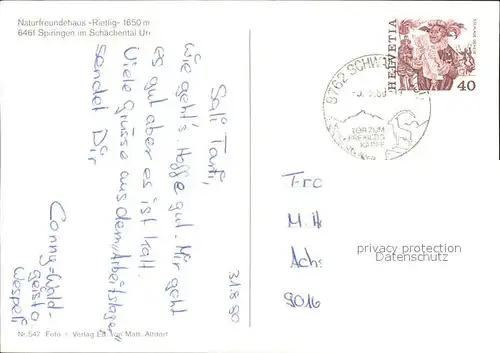 Naturfreundehaus «Rietlig» 1650 m
6461 Spiringen im Schächental Uri
HELVETIA
40
8762 SCHW
TOR ZUM
FREIBERG
KÄRPF
31 8 80
Sali Tanti,
Wie geht's. Hoffe gut. Mir geht
es gut aber es ist kalt.
Viele Grüsse aus dem „Arbeitslager"
sendet Dir
Conny-Wald-
geist
Wespeli
M. H
Ach
9016
privacy protection
Datenschutz
Nr. 542 Foto + Verlag Ed. von Matt, Altdorf